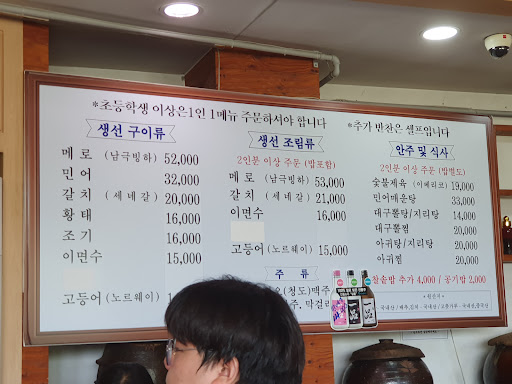 *초등학생 이상은1인 1메뉴 주문하셔야 합니다
생선 구이류
메로 (남극빙하) 52,000
민어 32,000
갈치 (세네갈) 20,000
황태 16,000
조기 16,000
이면수 15,000
고등어 (노르웨이)
생선 조림류
2인분 이상 주문 (밥포함)
메로 (남극빙하) 53,000
갈치 (세네갈) 21,000
이면수 16,000
고등어 (노르웨이) 15,000
주 류
(청도)맥주
막걸리
*추가 반찬은 셀프입니다
안주 및 식사
2인분 이상 주문 (밥별도)
숯불제육 (이베리코) 19,000
민어매운탕 33,000
대구뽈탕/지리탕 14,000
대구뽈찜 20,000
아귀탕/지리탕 20,000
아귀찜 20,000
솥밥 추가 4,000 / 공기밥 2,000